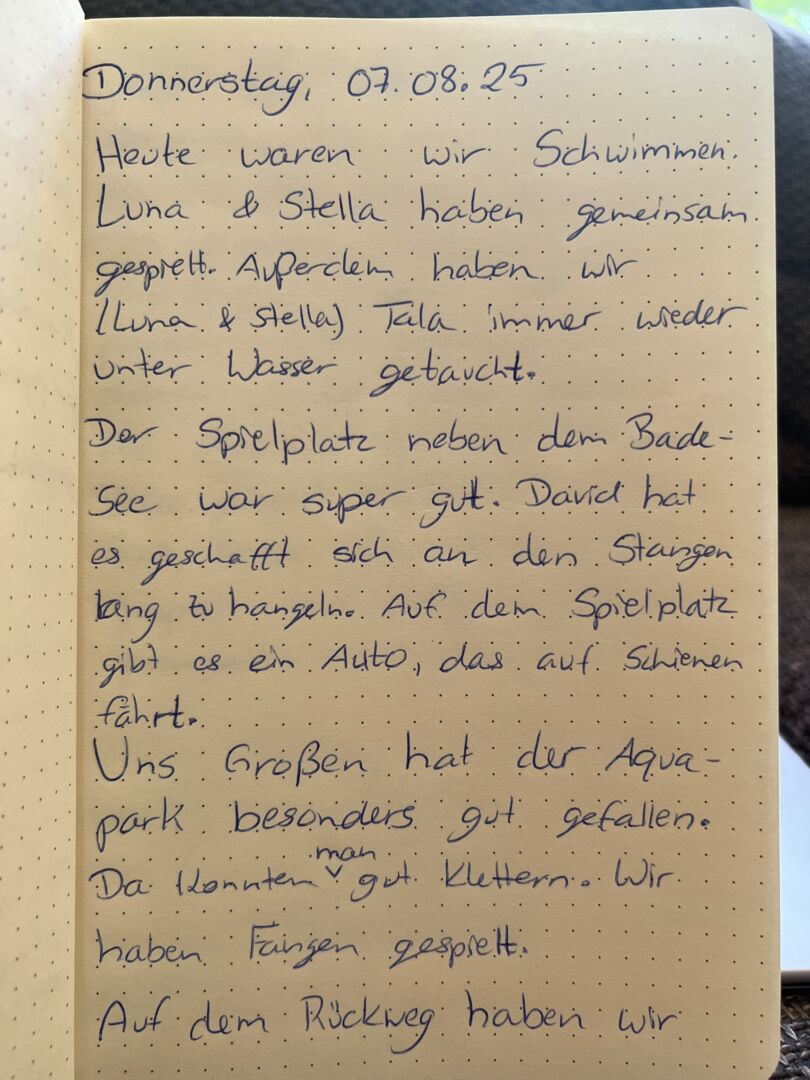 Donnerstag, 07.08.25
Heute waren wir Schwimmen.
Luna & Stella haben gemeinsam
gespielt. Außerdem haben wir
(Luna & Stella) Tala immer wieder
unter Wasser getaucht.
Der Spielplatz neben dem Bade-
See war super gut. David hat
es geschafft sich an den Stangen
lang zu hangeln. Auf dem Spielplatz
gibt es ein Auto, das auf Schienen
fährt.
Uns Großen hat der Aqua-
park besonders gut gefallen.
Da konnten man gut Klettern. Wir
haben Fangen gespielt.
Auf dem Rückweg haben wir